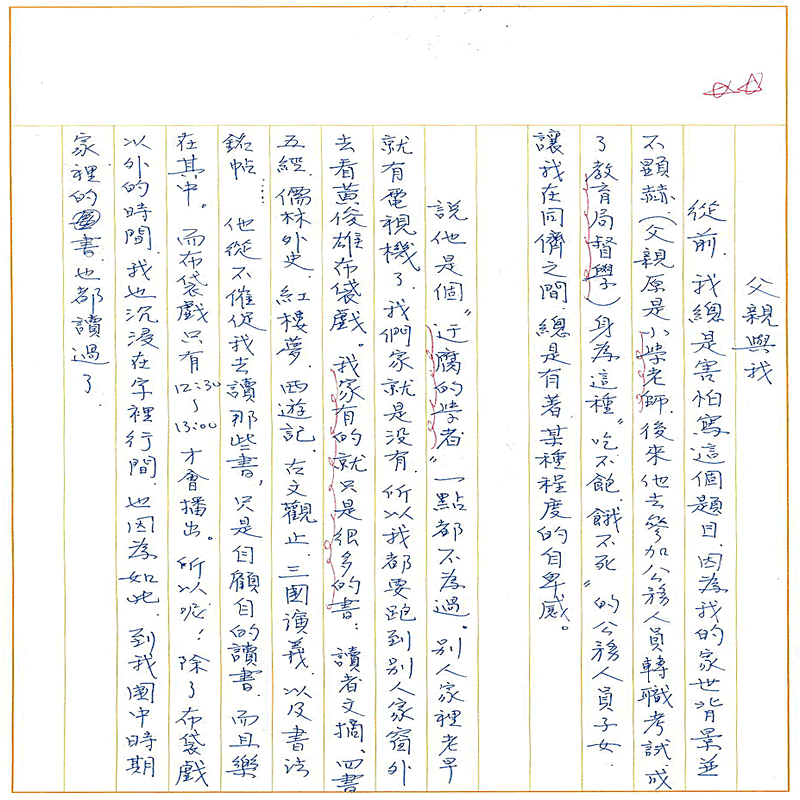 父親與我
從前，我總是害怕寫這個題目，因為我的家世背景並
不顯赫（父親原是小學老師，後來他去參加公務人員轉職考試成
了教育局督學）身為這種“吃不飽、餓不死”的公務人員子女，
讓我在同儕之間，總是有著某種程度的自卑感。
說他是個“迂腐的學者”一點都不為過。別人家裡老早
就有電視機了，我們家就是沒有，所以我都要跑到別人家窗外
去看黃俊雄布袋戲。我家有的就只是很多的書：讀者文摘、四書
五經、儒林外史、紅樓夢、西遊記、古文觀止、三國演義，以及書法
銘帖……他從不催促我去讀那些書，只是自顧自的讀書，而且樂
在其中。而布袋戲只有12:30~13:00才會播出。所以呢！除了布袋戲
以外的時間，我也沉浸在字裡行間，也因為如此，到我國中時期
家裡的書也都讀過了.